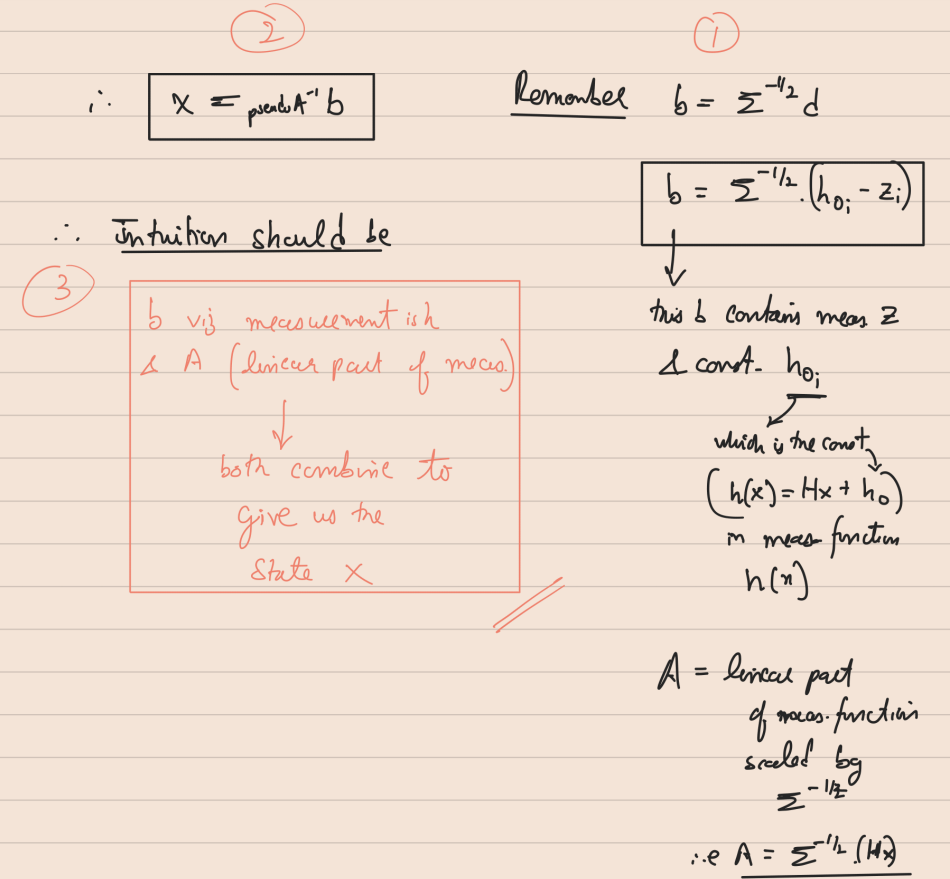 ②
∴ x = pseudo A⁻¹ b
∴ Intuition should be
③
b viz measurement ish
& A (linear part of meas.)
↓
both combine to
give us the
state x
①
Remember b = Σ^{-1/2} d
b = Σ^{-1/2}.(h₀ᵢ - zᵢ)
↓
this b contains meas z
& const. h₀ᵢ
which is the const
(h(x) = Hx + h₀)
in meas. function
h(x)
A = linear part
of meas. function
scaled by
Σ^{-1/2}
i.e A = Σ^{-1/2}.(Hx)